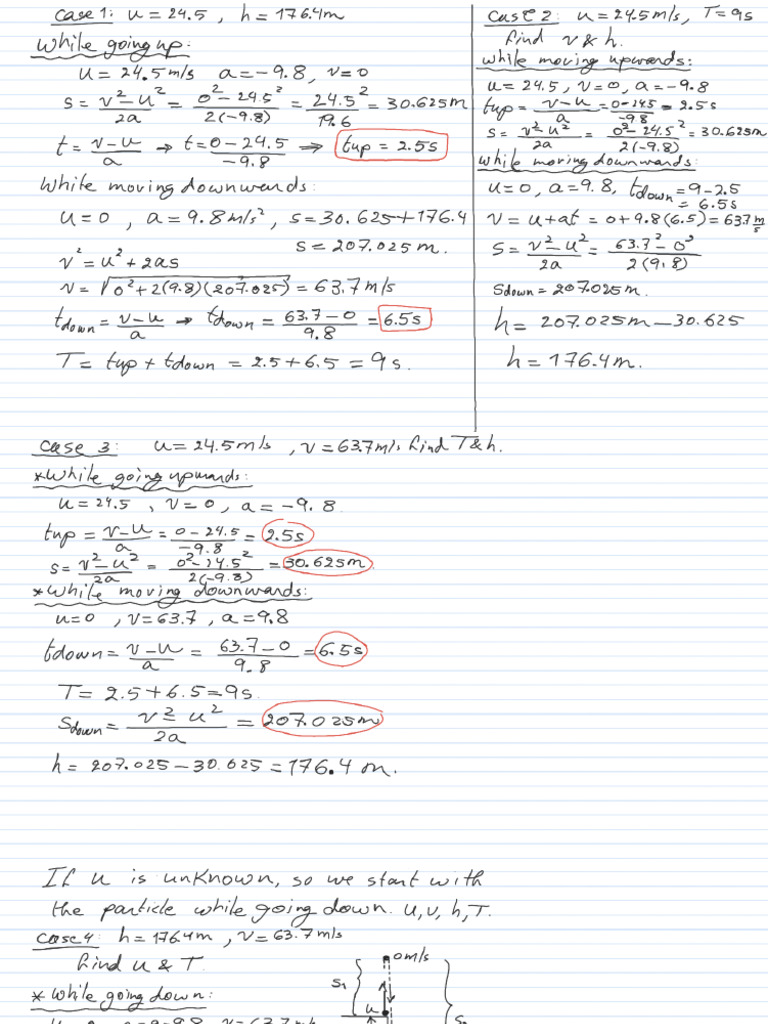 Case 1: u = 24.5 , h = 176.4m
While going up:
u = 24.5 m/s a = -9.8 , v = 0
s = (v² - u²)/2a = (0² - 24.5²)/2(-9.8) = 24.5²/19.6 = 30.625 m
t = (v - u)/a → t = (0 - 24.5)/-9.8 → tup = 2.5s
While moving downwards:
u = 0 , a = 9.8 m/s², s = 30.625 + 176.4
s = 207.025 m.
v² = u² + 2as
v = √(0² + 2(9.8)(207.025)) = 63.7 m/s
tdown = (v - u)/a → tdown = (63.7 - 0)/9.8 = 6.5s
T = tup + tdown = 2.5 + 6.5 = 9s.
Case 2: u = 24.5 m/s, T = 9s
find v & h.
while moving upwards:
u = 24.5 , v = 0, a = -9.8
tup = (v - u)/a = (0 - 24.5)/-9.8 = 2.5s
s = (v² - u²)/2a = (0² - 24.5²)/2(-9.8) = 30.625m
while moving downwards:
u = 0 , a = 9.8, tdown = 9 - 2.5
= 6.5s
v = u + at = 0 + 9.8(6.5) = 63.7 m/s
s = (v² - u²)/2a = (63.7² - 0²)/2(9.8)
sdown = 207.025m.
h = 207.025m - 30.625
h = 176.4 m.
Case 3: u = 24.5 m/s , v = 63.7 m/s find T & h.
*While going upwards:
u = 24.5 , v = 0 , a = -9.8
tup = (v - u)/a = (0 - 24.5)/-9.8 = 2.5s
s = (v² - u²)/2a = (0² - 24.5²)/2(-9.8) = 30.625m
*While moving downwards:
u = 0 , v = 63.7 , a = 9.8
tdown = (v - u)/a = (63.7 - 0)/9.8 = 6.5s
T = 2.5 + 6.5 = 9s.
Sdown = (v² - u²)/2a = 207.025m
h = 207.025 - 30.625 = 176.4 m.
If u is unknown, so we start with
the particle while going down. u, v, h, T.
Case 4: h = 176.4m , v = 63.7 m/s
find u & T.
* While going down:
0 m/s
S₁
u